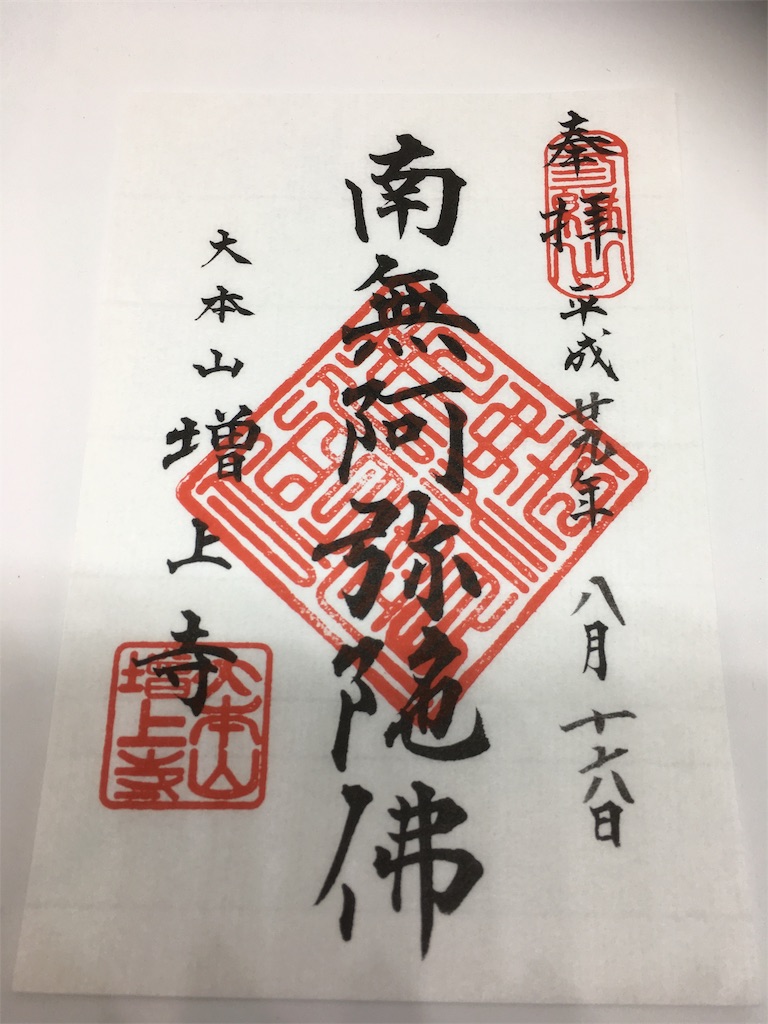 奉拝 平成廿九年 八月 十六日
三縁山
南無阿弥陀佛
大本山 増上寺
大本山
増上寺